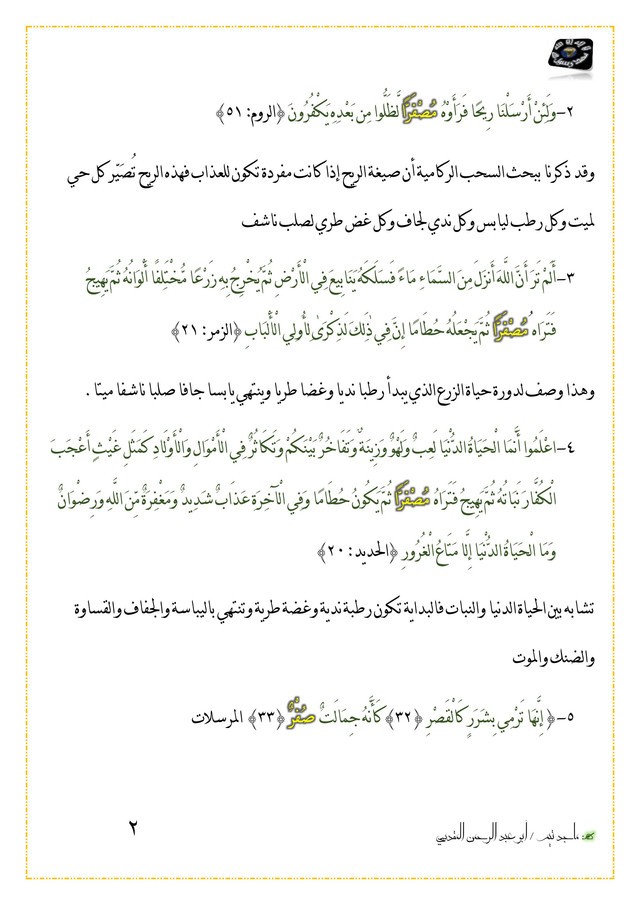 ٢-وَلَئِنْ أَرْسَلْنَا رِيحًا فَرَأَوْهُ مُصْفَرًّا لَّظَلُّوا مِن بَعْدِهِ يَكْفُرُونَ ﴿الروم: ٥١﴾
وقد ذكرنا ببحث السحب الركامية أن صيغة الريح إذا كانت مفردة تكون للعذاب فهذه الريح تُصَيّر كل حي
لميت وكل رطب ليابس وكل ندي لجاف وكل غض طري لصلب ناشف
٣-أَلَمْ تَرَ أَنَّ اللَّهَ أَنزَلَ مِنَ السَّمَاءِ مَاءً فَسَلَكَهُ يَنَابِيعَ فِي الْأَرْضِ ثُمَّ يُخْرِجُ بِهِ زَرْعًا مُّخْتَلِفًا أَلْوَانُهُ ثُمَّ يَهِيجُ
فَتَرَاهُ مُصْفَرًّا ثُمَّ يَجْعَلُهُ حُطَامًا إِنَّ فِي ذَٰلِكَ لَذِكْرَىٰ لِأُولِي الْأَلْبَابِ ﴿الزمر: ٢١﴾
وهذا وصف لدورة حياة الزرع الذي يبدأ رطبا نديا وغضا طريا وينتهي يابسا جافا صلبا ناشفا ميتا .
٤-اعْلَمُوا أَنَّمَا الْحَيَاةُ الدُّنْيَا لَعِبٌ وَلَهْوٌ وَزِينَةٌ وَتَفَاخُرٌ بَيْنَكُمْ وَتَكَاثُرٌ فِي الْأَمْوَالِ وَالْأَوْلَادِ كَمَثَلِ غَيْثٍ أَعْجَبَ
الْكُفَّارَ نَبَاتُهُ ثُمَّ يَهِيجُ فَتَرَاهُ مُصْفَرًّا ثُمَّ يَكُونُ حُطَامًا وَفِي الْآخِرَةِ عَذَابٌ شَدِيدٌ وَمَغْفِرَةٌ مِّنَ اللَّهِ وَرِضْوَانٌ
وَمَا الْحَيَاةُ الدُّنْيَا إِلَّا مَتَاعُ الْغُرُورِ ﴿الحديد: ٢٠﴾
تشابه بين الحياة الدنيا والنبات فالبداية تكون رطبة ندية وغضة طرية وتنتهي باليباسة والجفاف والقساوة
والضنك والموت
٥-﴿إِنَّهَا تَرْمِي بِشَرَرٍ كَالْقَصْرِ ﴿٣٢﴾كَأَنَّهُ جِمَالَتٌ صُفْرٌ ﴿٣٣﴾ المرسلات
ماجد تيم / أبو عبد الرحمن المقدسي
٢